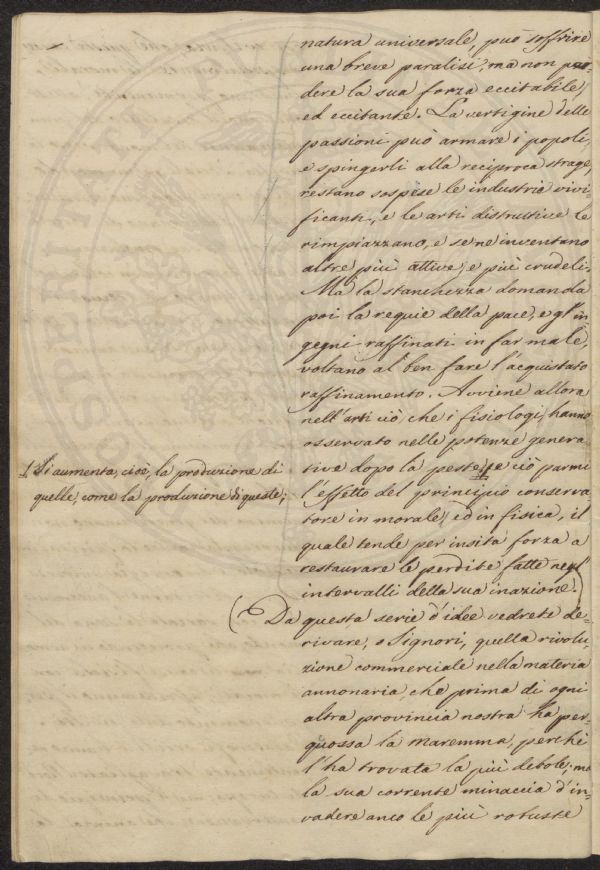 natura universale, può soffrire
una breve paralisi, ma non per=
dere la sua forza eccitabile,
ed eccitante. La vertigine delle
passioni può armare i popoli,
e spingerli alla reciproca strage,
restano sospese le industrie vivi=
ficanti, e le arti distruttive le
rimpiazzano, e se ne inventano
altre più attive, e più crudeli.
Ma la stanchezza domanda
poi la requie della pace, e gl'in
gegni raffinati in far male,
voltano al ben fare l'acquistato
raffinamento. Avviene allora
nell'arti ciò che i fisiologi hanno
osservato nelle potenze genera
tive dopo la peste, e ciò parmi
l'effetto del principio conserva
tore in morale, ed in fisica, il
quale tende per insita forza a
restaurare le perdite fatte negl'
intervalli della sua inazione.
Si aumenta, cioè, la produzione di
quelle, come la produzione di queste;
(Da questa serie d'idee vedrete de=
rivare, o Signori, quella rivolu=
zione commerciale nella materia
annonaria, che prima di ogni
altra provincia nostra ha per=
quossa la Maremma, perchè
l'ha trovata la più debole; ma
la sua corrente minaccia d'in=
vadere anco le più robuste
OSPERITATI PU